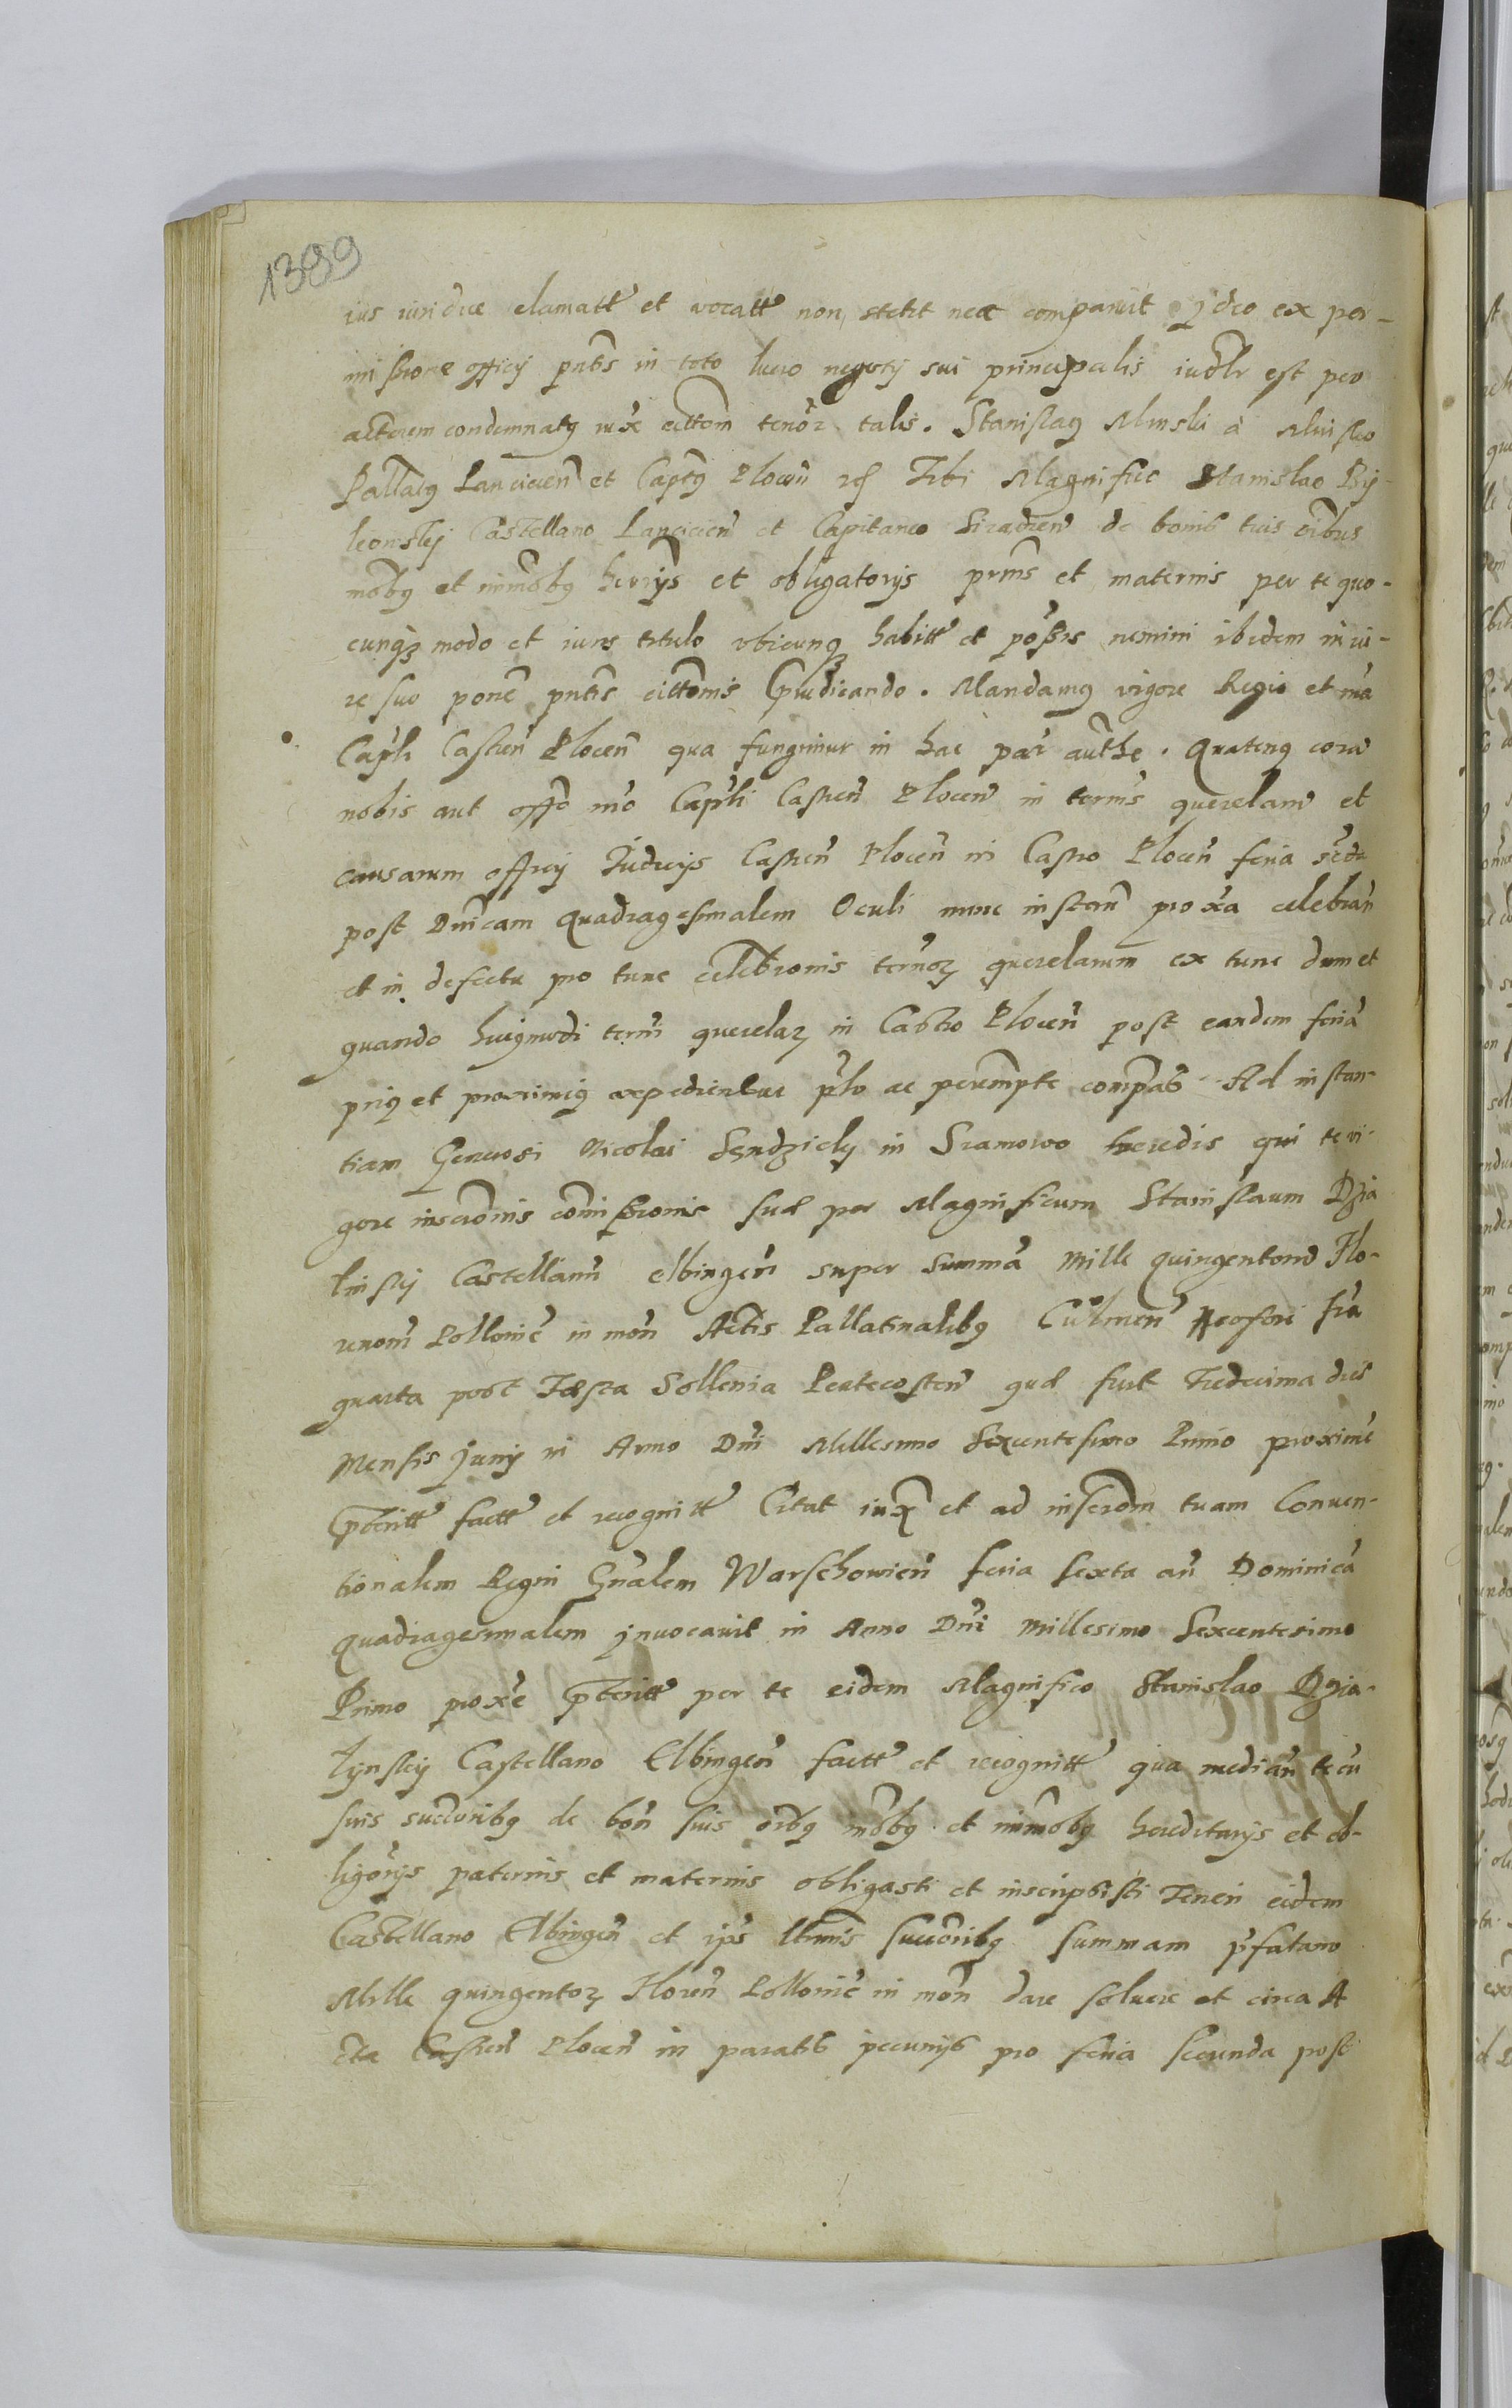 1399
ius iuridice clamatt et vocatt non stetit nec comparuit Ideo ex per-
missione officij pntis in toto lucro negotij sui principalis iudlr est per
actorem condemnatg iux cittom tenor talis. Stanislag Minski à Minsko
Pallatg Lancicien et Captg Plocen Tibi Magnifice Stanislao By-
leonskij Castellano Lancicien et Capitaneo Siradien de bonis tuis oibus
mobg et immobg herijs et obligatorijs prnis et maternis per te quo-
cungz modo et iuris titulo vbicunq habitt et possis nemini ibidem in iu-
re suo pone pntis cittomis Cpiudicando. Mandamg vigore Regio et nra
Capli Castren Plocen qua fungimur in hac par authe. Quateng cora
nobis aut offo nro Capli Castren Plocen in termis querelam et
causarum officij Iudicijs Castren Plocen in Castro Plocen feria scda
post Dnicam Quadragesimalem Oculi nunc instan proxa celebran
et in defectu pro tunc celebronis ternoz querelarum ex tunc dum et
quando huigmodi term querelaz in Castro Plocen post eandem feria
prig et proximig expedientur plr ac peremptr compas Ad instan-
tiam Generosi Nicolai Sendzicky in Sramowo heredis qui te vi-
gore inscromis comissionis suae per Magnificum Stanislaum Dzia
linskij Castellanu Elbingen super summa Mille Quingentoru Flo-
renoru Pollonic in mon Actis Pallatinalibg Culmen feria
quarta post Festa Sollenia Pentecosten quae fuit Tredecima dies
Mensis Junij in Anno Dni Millesimo Sexcentesimo Primo proxime
Cpteritt factt et recognitt Citat iuxa et ad inscrom tuam Conuen-
tionalem Regni Gnalem Warschowien feria sexta an Dominica
Quadragesimalem Inuocauit in Anno Dni Millesimo Sexcentesimo
Primo proxe Cpteritt per te eidem Magnifico Stanislao Dzia-
lynskij Castellano Elbingen factt et recognitt qua median te cu
suis sucoribg de bon suis oibg mobg et immobg hereditarijs et ob-
ligorijs paternis et maternis obligasti et inscripsisti Teneri eidem
Castellano Elbingen et ips ltimis sucoribg summam pfatam
Mille quingentoz Floren Pollonic in mon dare soluere et circa A
cta Castren Plocen in paratis pecunijs pro feria secunda post